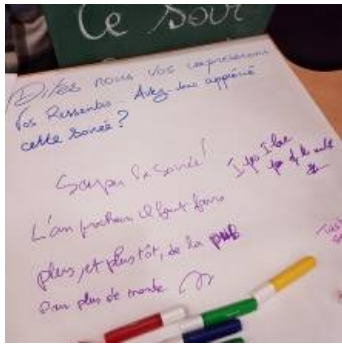 Ce Soir
Dites nous vos impressions
Vos Ressentis. Avez-vous apprécié
cette soirée?
Super la soirée!
L'an prochain il faut faire
plus, et plus tôt, de la pub
pour plus de monde